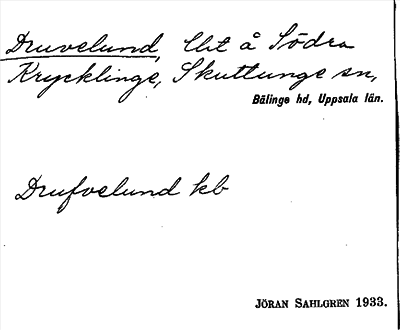 Druvelund, lht å Södra
Krycklinge, Skuttunge sn,
Bälinge hd, Uppsala län.
Drufvelund kb
JÖRAN SAHLGREN 1933.